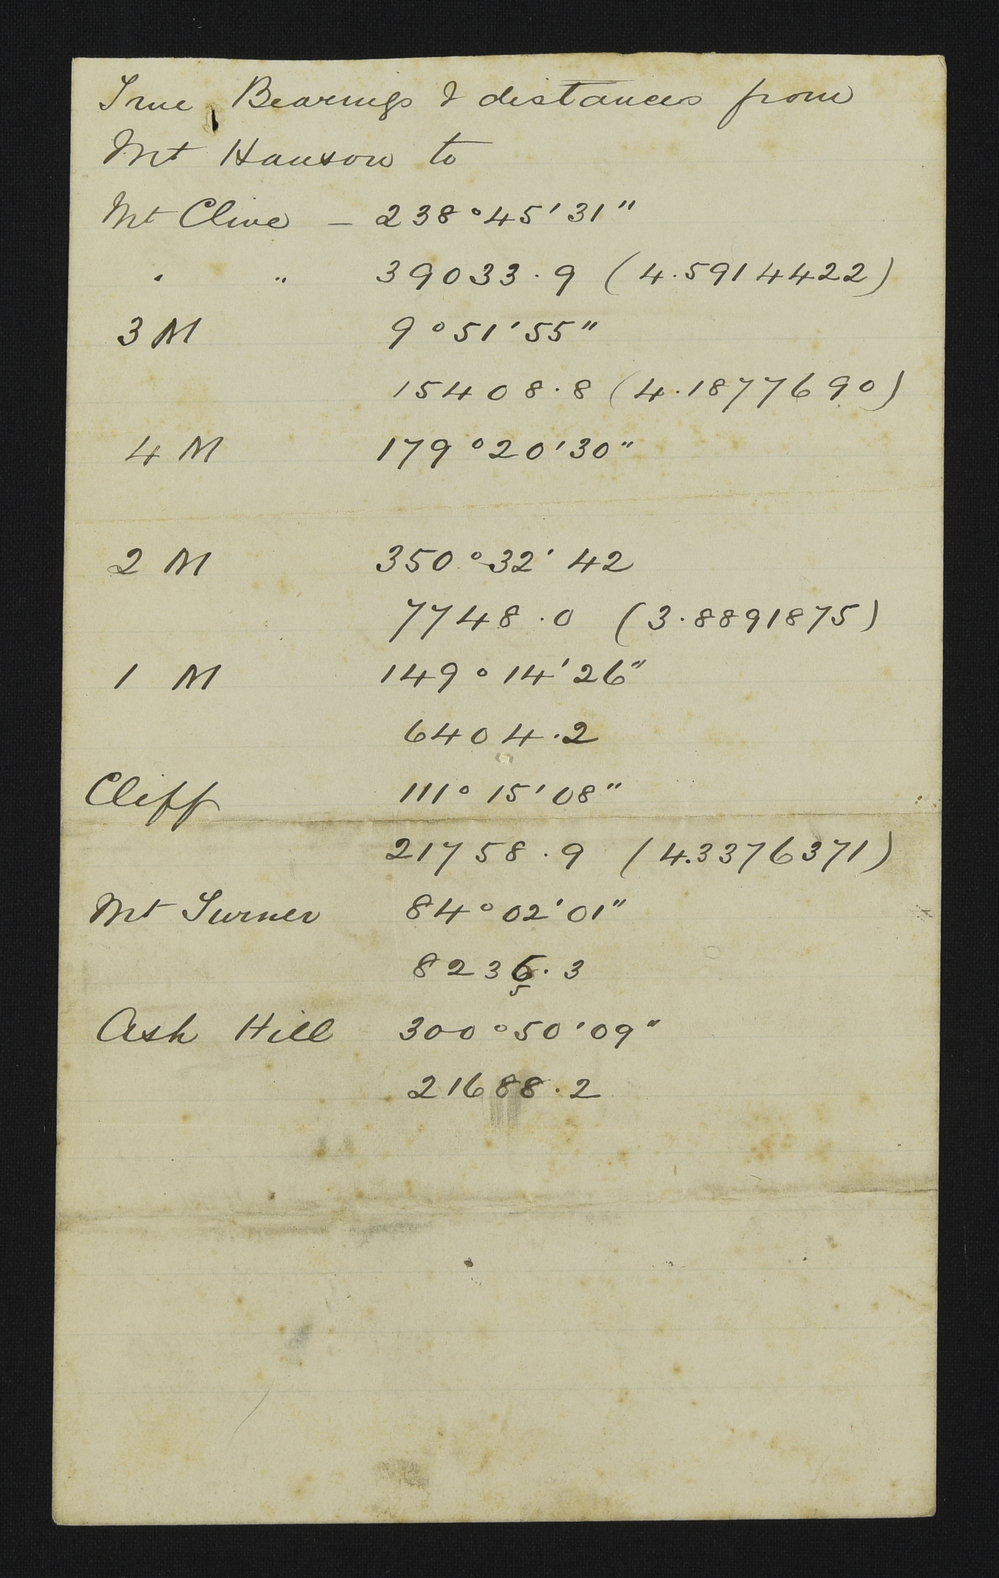 True Bearings & distances from
Mt Hanson to
Mt Clive – 238°45'31"
" " 39033.9 (4.5914422)
3 M 9°51'55"
15408.8 (4.1877690)
4 M 179°20'30"
2 M 350°32'42
7748.0 (3.8891875)
1 M 149°14'26"
6404.2
Cliff 111°15'08"
21758.9 (4.3376371)
Mt Turner 84°02'01"
8236.3
5
Ash Hill 300°50'09"
21688.2